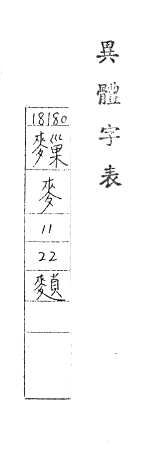 異體字表
18180
麥
11
22